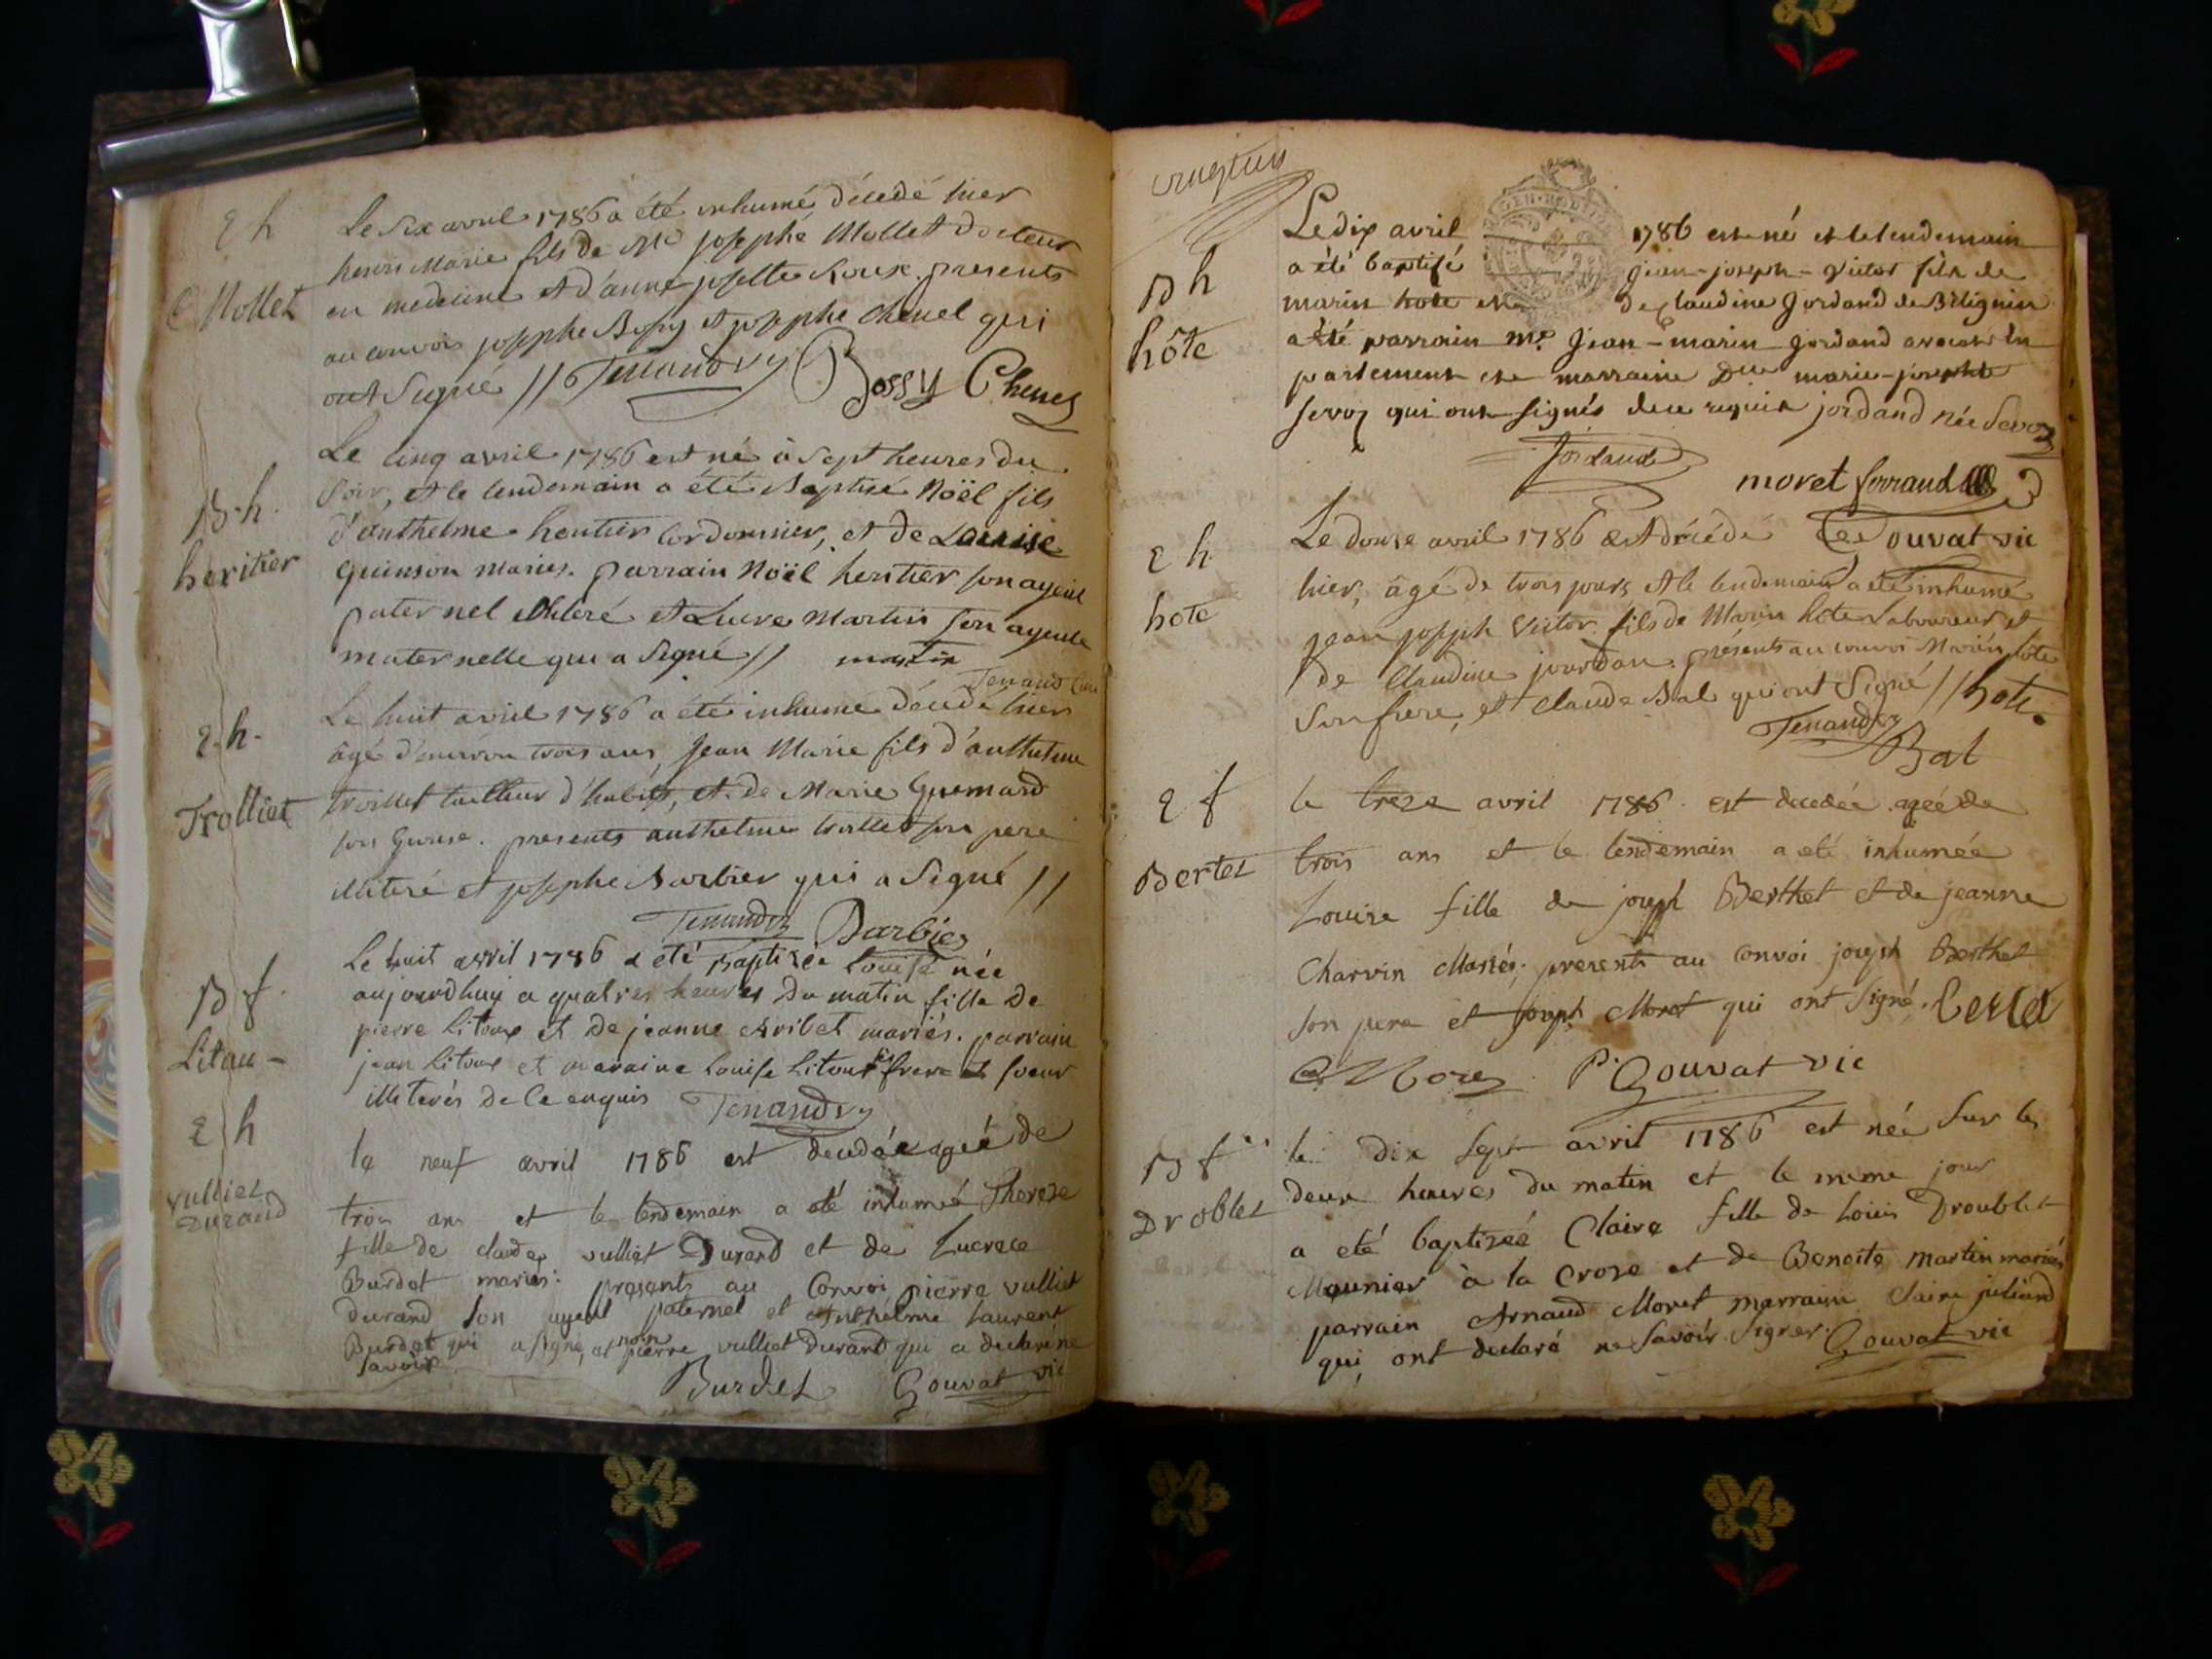 E h
Mollet
Le six avril 1786 a été inhumé, décédé hier
henri Marie fils de Me josephe Mollet docteur
en medecine et d'anne josette Roux. presents
au convoi josephe Bossy et josephe Chenel qui
ont Signé // Tenand Bossy Chenel
B. h.
heritier
Le cinq avril 1786 est né à Sept heures du
soir, et le lendemain a été Baptisé Noël fils
d'anthelme heritier Cordonnier, et de Louise
Guinson Mariés. parrain Noël heritier son ayeul
paternel illiteré et Martin son ayeule
maternelle qui a Signé // martin
Tenand Curé
E. h.
Trolliet
Le huit avril 1786 a été inhumé décédé hier
âgé d'environ trois ans, Jean Marie fils d'anthelme
trolliet tailleur d'habits, et de Marie Guemard
son Epouse. presents anthelme trolliet son pere
illiteré et josephe Barbier qui a Signé //
Tenand Barbier
B f.
Litau -
Le huit avril 1786 a été Baptisée Louise née
aujourdhuy a quatres heures du matin fille de
pierre Litoux et de jeanne Aribet mariés. parrain
jean Litoux et maraine Louise Litoux ses frere et soeur
illiterés de ce enquis Tenand
E h
vulliet
Durand
le neuf avril 1786 est decedée ageé de
trois ans et le lendemain a eté inhumeé Therese
fille de claude vulliet Durand et de Lucrece
Burdet mariés: presents au Convoi pierre vulliet
durand son ayeul paternel et Anthelme Laurent
Burdet qui a signé, et non pierre vulliet Durand qui a declaré ne
savoir
Burdet Gouvat vic
B h
hôte
Le dix avril 1786 est né et le lendemain
a été baptisé jean-joseph-victor fils de
marin hote et de Claudine Jordand de Bilignin
a été parrain me jean-marin jordand avocat en
parlement et marraine Dlle marie-josephte
Sevoz qui ont signés de ce requis jordand née Sevoz
Jordand
moret ferrand
Gouvat vic
E h
hote
Le douze avril 1786 est décédé
hier, âgé de trois jours et le lendemain a été inhumé
jean joseph Victor fils de Marin hôte Laboureur et
de Claudine jourdan. présents au convoi Marin hôte
Son frere, et Claude Bal qui ont Signé // hote
Tenand
Bal
E f
Bertet
le treze avril 1786. est decedée ageé de
trois ans et le lendemain a eté inhumée
Louise fille de joseph Berthet et de jeanne
Charvin Mariés; presents au Convoi joseph Berthet
son pere et joseph Moret qui ont Signé. Bertet
Moret P. Gouvat vic
B f
Droblet
le dix Sept avril 1786 est neé Sur les
deux heures du matin et le meme jour
a eté baptizeé Claire fille de Louis Droublet
Meunier à la Croze et de Benoite Martin mariés
parrain Arnaud Moret marraine Claire juliand
qui ont declaré ne Savoir Signer. Gouvat vic